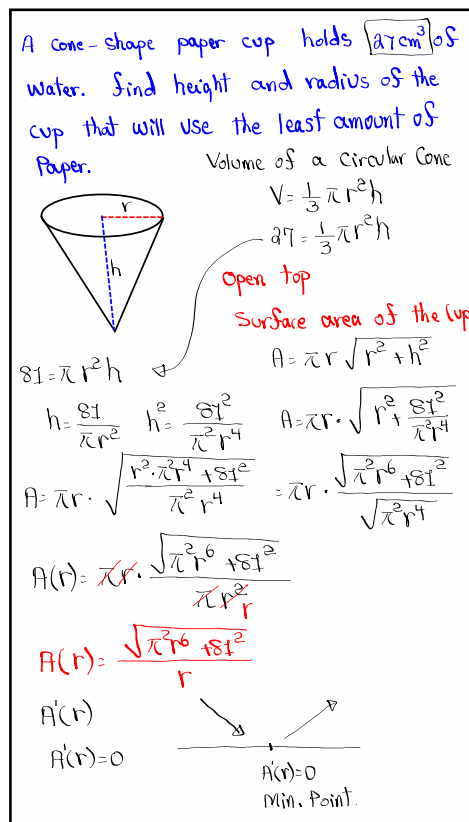 A cone-shape paper cup holds 27cm³ of
water. find height and radius of the
cup that will use the least amount of
Paper.
Volume of a circular Cone
V=1/3 πr²h
27=1/3 πr²h
r
h
open top
Surface area of the Cup
81=πr²h
A=πr√(r²+h²)
h=81/(πr²) h²=81²/(π²r⁴)
A=πr·√(r²+81²/(π²r⁴))
A=πr·√((r²·π²r⁴+81²)/(π²r⁴))
=πr·√(π²r⁶+81²)/√(π²r⁴)
A(r)=πr·√(π²r⁶+81²)/(πr²) r
A(r)=√(π²r⁶+81²)/r
A'(r)
A'(r)=0
A'(r)=0
Min. Point